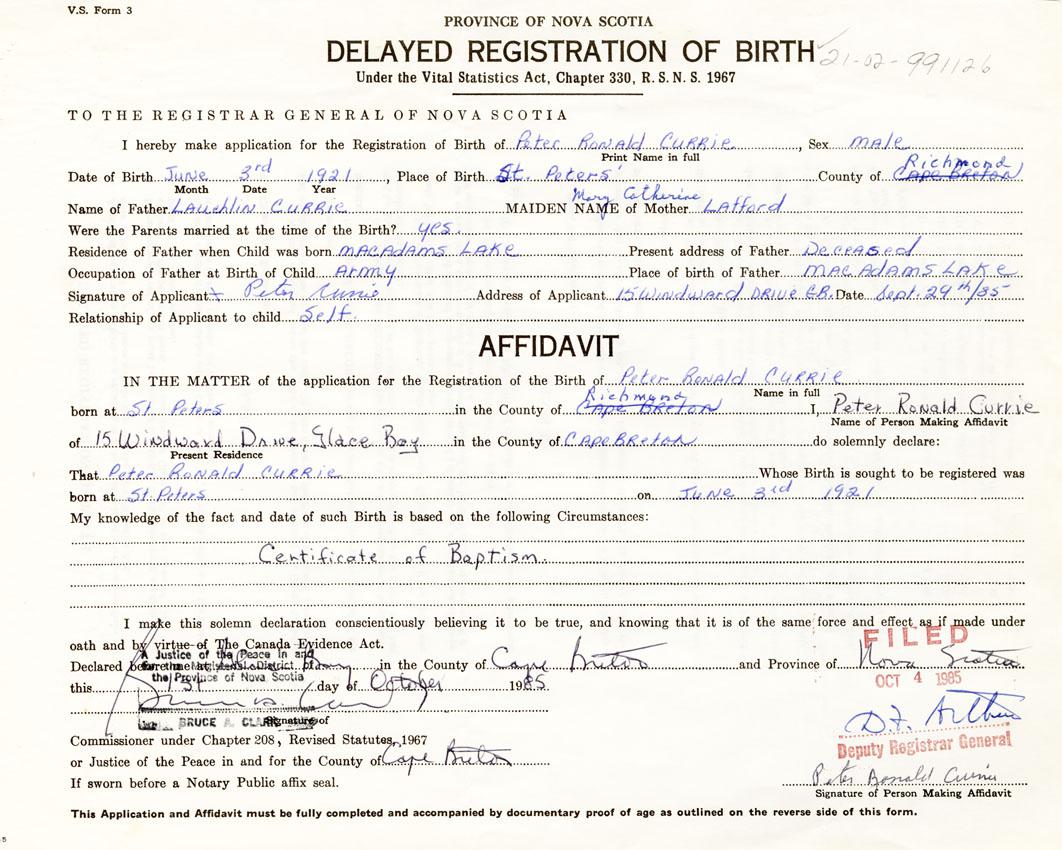 V.S. Form 3
PROVINCE OF NOVA SCOTIA
DELAYED REGISTRATION OF BIRTH
21-02-991126
Under the Vital Statistics Act, Chapter 330, R.S.N.S. 1967
TO THE REGISTRAR GENERAL OF NOVA SCOTIA
I hereby make application for the Registration of Birth of Peter Ronald Currie, Sex male
Print Name in full
Richmond
Date of Birth June 3rd 1921, Place of Birth St. Peters' County of Cape Breton
Month Date Year
Mary Catherine
Name of Father Lauchlin Currie MAIDEN NAME of Mother Latford
Were the Parents married at the time of the Birth? yes.
Residence of Father when Child was born MacAdams Lake Present address of Father Deceased
Occupation of Father at Birth of Child Army Place of birth of Father MacAdams Lake
Signature of Applicant x Peter Currie Address of Applicant 15 Windward Drive G.B. Date Sept. 29th/85
Relationship of Applicant to child Self.
AFFIDAVIT
IN THE MATTER of the application for the Registration of the Birth of Peter Ronald Currie
Richmond Name in full
born at St Peters in the County of Cape Breton I, Peter Ronald Currie
Name of Person Making Affidavit
of 15 Windward Drive, Glace Bay in the County of Cape Breton do solemnly declare:
Present Residence
That Peter Ronald Currie Whose Birth is sought to be registered was
born at St. Peters on June 3rd 1921
My knowledge of the fact and date of such Birth is based on the following Circumstances:
Certificate of Baptism.
I make this solemn declaration conscientiously believing it to be true, and knowing that it is of the same force and effect as if made under
oath and by virtue of The Canada Evidence Act.
FILED
A Justice of the Peace In and
Declared before me at in the County of Cape Breton and Province of Nova Scotia
the Province of Nova Scotia
OCT 4 1985
this 1st day of October 1985
BRUCE A. Signature of
D.F. Arthur
Commissioner under Chapter 208, Revised Statutes, 1967
Deputy Registrar General
or Justice of the Peace in and for the County of Cape Breton
Peter Ronald Currie
If sworn before a Notary Public affix seal.
Signature of Person Making Affidavit
This Application and Affidavit must be fully completed and accompanied by documentary proof of age as outlined on the reverse side of this form.